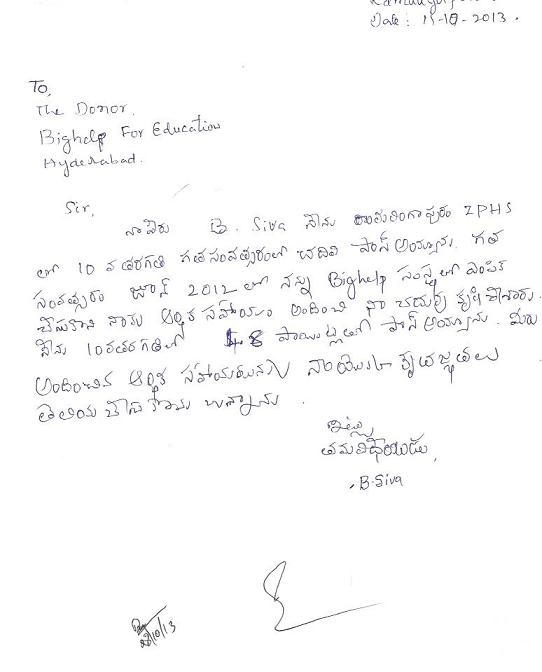 Date : 15-10-2013.
To,
The Donor.
Bighelp For Education
Hyderabad.
Sir,
నా పేరు B. Siva నేను రామలింగాపురం ZPHS
లో 10 వ తరగతి గతసంవత్సరంలో చదివి పాస్ అయ్యాను. గత
సంవత్సరం జూన్ 2012 లో నన్ను Bighelp సంస్థలో ఎంపిక
చేసుకొని నాకు ఆర్థిక సహాయం అందించి నా చదువుకు కృషి చేసినారు.
నేను 10వ తరగతిలో 8 పాయింట్లతో పాస్ అయ్యాను. మీరు
అందించిన ఆర్థిక సహాయమునకు నాయొక్క కృతజ్ఞతలు
తెలియ చేసుకొను చున్నాను.
ఇట్లు
తమ విధేయుడు,
B.Siva